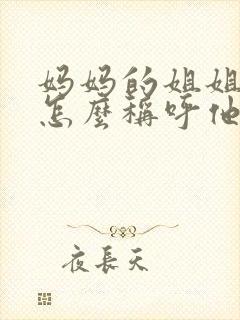 妈妈的姐姐
怎麼稱呼他
夜長天